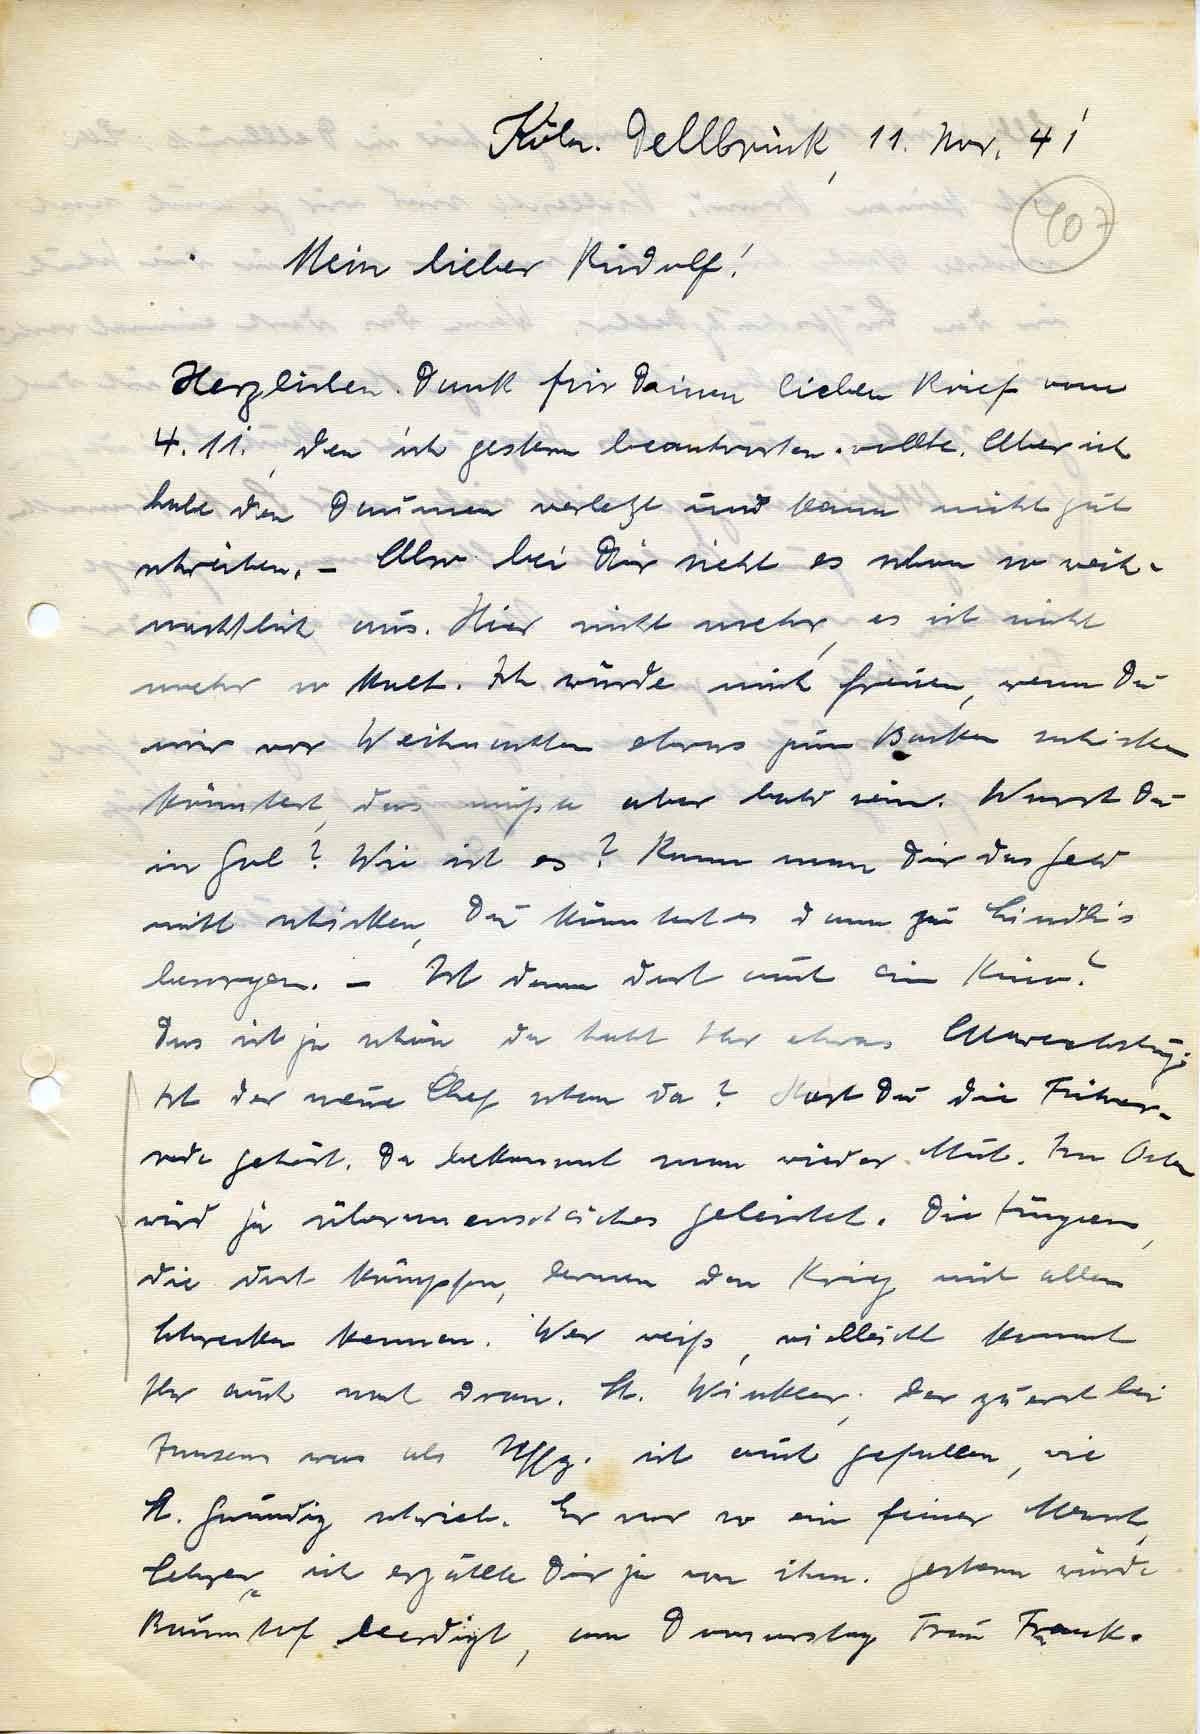 Köln. Dellbrück, 11. Nov. 41
407
Mein lieber Rudolf!
Herzlichen Dank für Deinen lieben Brief vom
4. 11., den ich gestern beantworten wollte. Aber ich
habe den Daumen verletzt und kann nicht gut
schreiben. – Also bei Dir sieht es schon so weih-
nachtlich aus. Hier nicht mehr, es ist nicht
mehr so kalt. Ich würde mich freuen, wenn Du
mir vor Weihnachten etwas zum Backen schicken
könntest, das müßte aber bald sein. Warst Du
in Gol? Wie ist es? Kann man Dir das Geld
mitt schicken, Du könntest es dann zu
besorgen. – Ist denn dort auch ein Kino?
Das ist ja schön da habt Ihr etwas
Ist der neue Chef schon da? Hast Du die Führer-
rede gehört. Da bekommt man wieder Mut. Im Osten
wird ja übermenschliches geleistet. Die Jungens,
die dort kämpfen, lernen den Krieg mit allen
Schrecken kennen. Wer weiß, vielleicht kommt
Ihr auch noch dran. St. Winkler, der zuerst bei
Janssens war als Uffz. ist auch gefallen, wie
St. Gründig schrieb. Er war so ein feiner Mensch,
Lehrer, ich erzählte Dir ja von ihm. Gestern wurde
beerdigt, am Donnerstag Frau Frank.